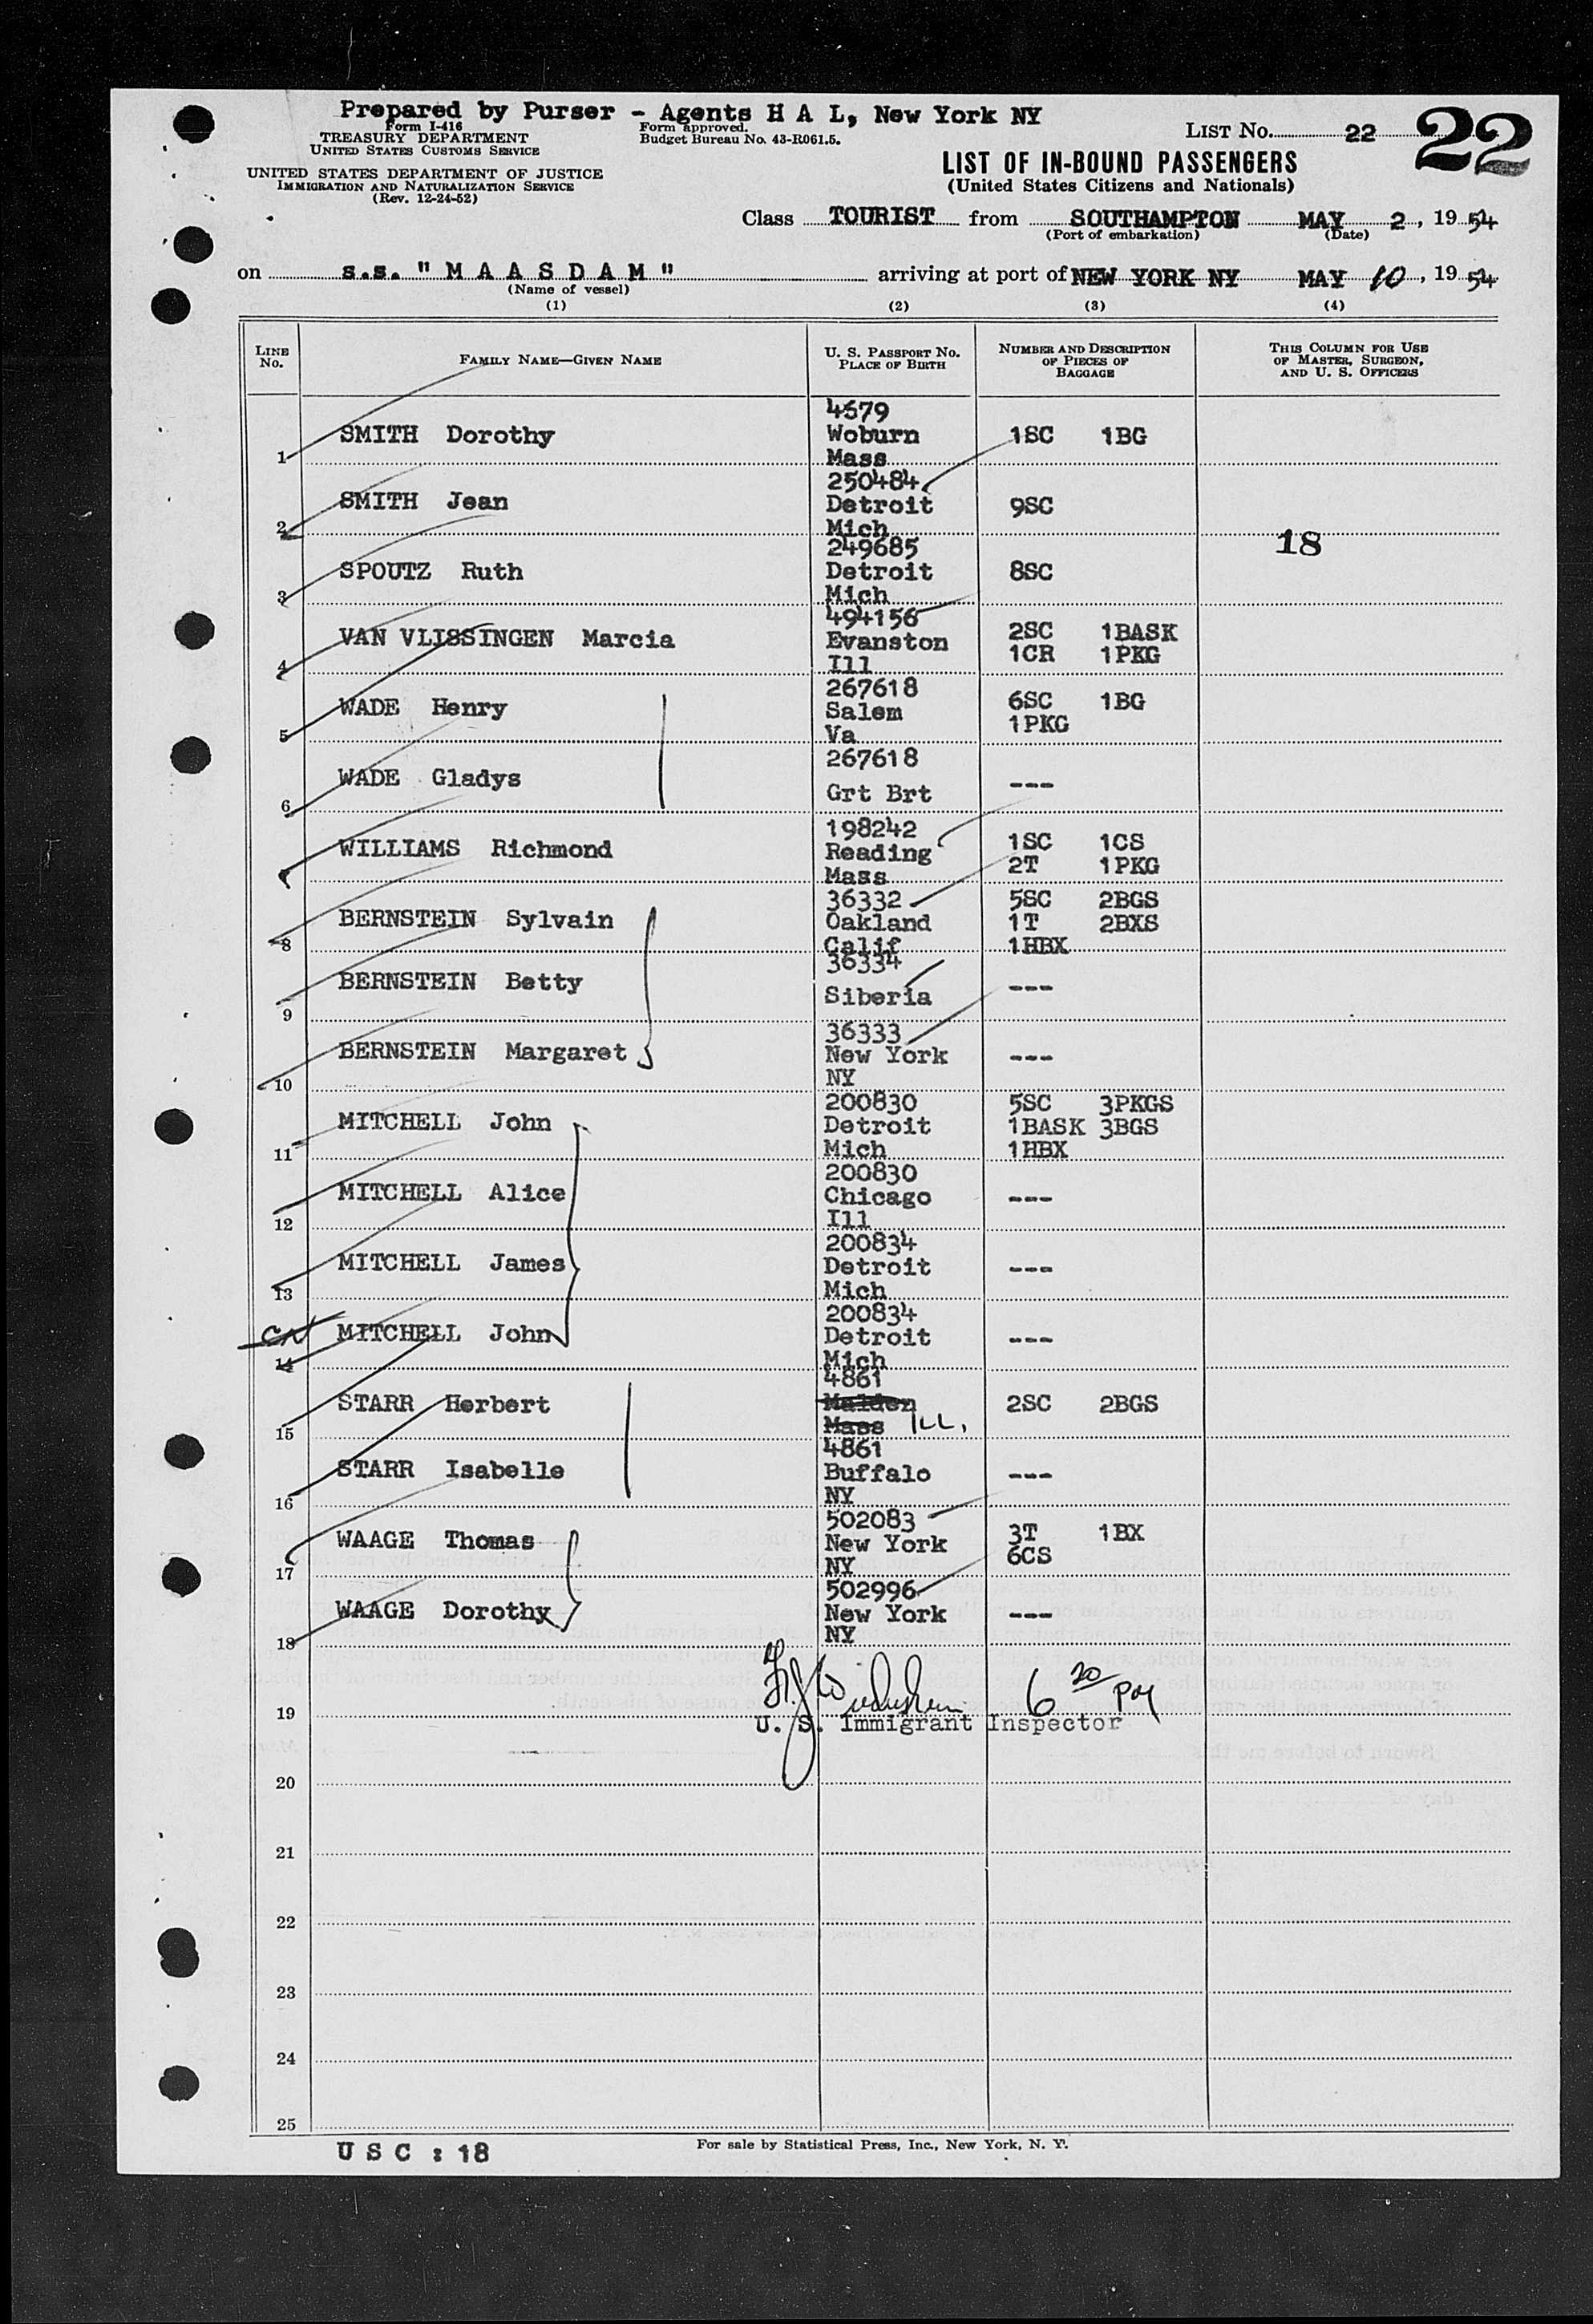 Prepared by Purser - Agents H A L, New York NY
Form I-416
TREASURY DEPARTMENT
UNITED STATES CUSTOMS SERVICE
Form approved.
Budget Bureau No. 43-R061.5.
LIST No. 22 22
UNITED STATES DEPARTMENT OF JUSTICE
IMMIGRATION AND NATURALIZATION SERVICE
(Rev. 12-24-52)
LIST OF IN-BOUND PASSENGERS
(United States Citizens and Nationals)
Class TOURIST from SOUTHAMPTON MAY 2, 1954
(Port of embarkation) (Date)
on s.s. " M A A S D A M " arriving at port of NEW YORK NY MAY 10, 1954
(Name of vessel)
(1) (2) (3) (4)
LINE No. FAMILY NAME—GIVEN NAME U. S. PASSPORT No. PLACE OF BIRTH NUMBER AND DESCRIPTION OF PIECES OF BAGGAGE THIS COLUMN FOR USE OF MASTER, SURGEON, AND U. S. OFFICERS
4679
SMITH Dorothy Woburn 1SC 1BG
1 Mass
250484
SMITH Jean Detroit 9SC
2 Mich
18
249685
SPOUTZ Ruth Detroit 8SC
3 Mich
494156
VAN VLISSINGEN Marcia Evanston 2SC 1BASK
4 Ill 1CR 1PKG
267618
WADE Henry Salem 6SC 1BG
5 Va 1PKG
267618
WADE Gladys Grt Brt ---
6
198242
WILLIAMS Richmond Reading 1SC 1CS
7 Mass 2T 1PKG
36332 5SC 2BGS
BERNSTEIN Sylvain Oakland 1T 2BXS
8 Calif 1HBX
36334
BERNSTEIN Betty Siberia ---
9
36333
BERNSTEIN Margaret New York ---
10 NY
200830 5SC 3PKGS
MITCHELL John Detroit 1BASK 3BGS
11 Mich 1HBX
200830
MITCHELL Alice Chicago ---
12 Ill
200834
MITCHELL James Detroit ---
13 Mich
200834
MITCHELL John Detroit ---
14 Mich
4861
STARR Herbert Malden 2SC 2BGS
15 Mass ILL.
4861
STARR Isabelle Buffalo ---
16 NY
502083
WAAGE Thomas New York 3T 1BX
17 NY 6CS
502996
WAAGE Dorothy New York ---
18 NY
6 20 PM
19
U. S. Immigrant Inspector
20
21
22
23
24
25
U S C : 18
For sale by Statistical Press, Inc., New York, N. Y.